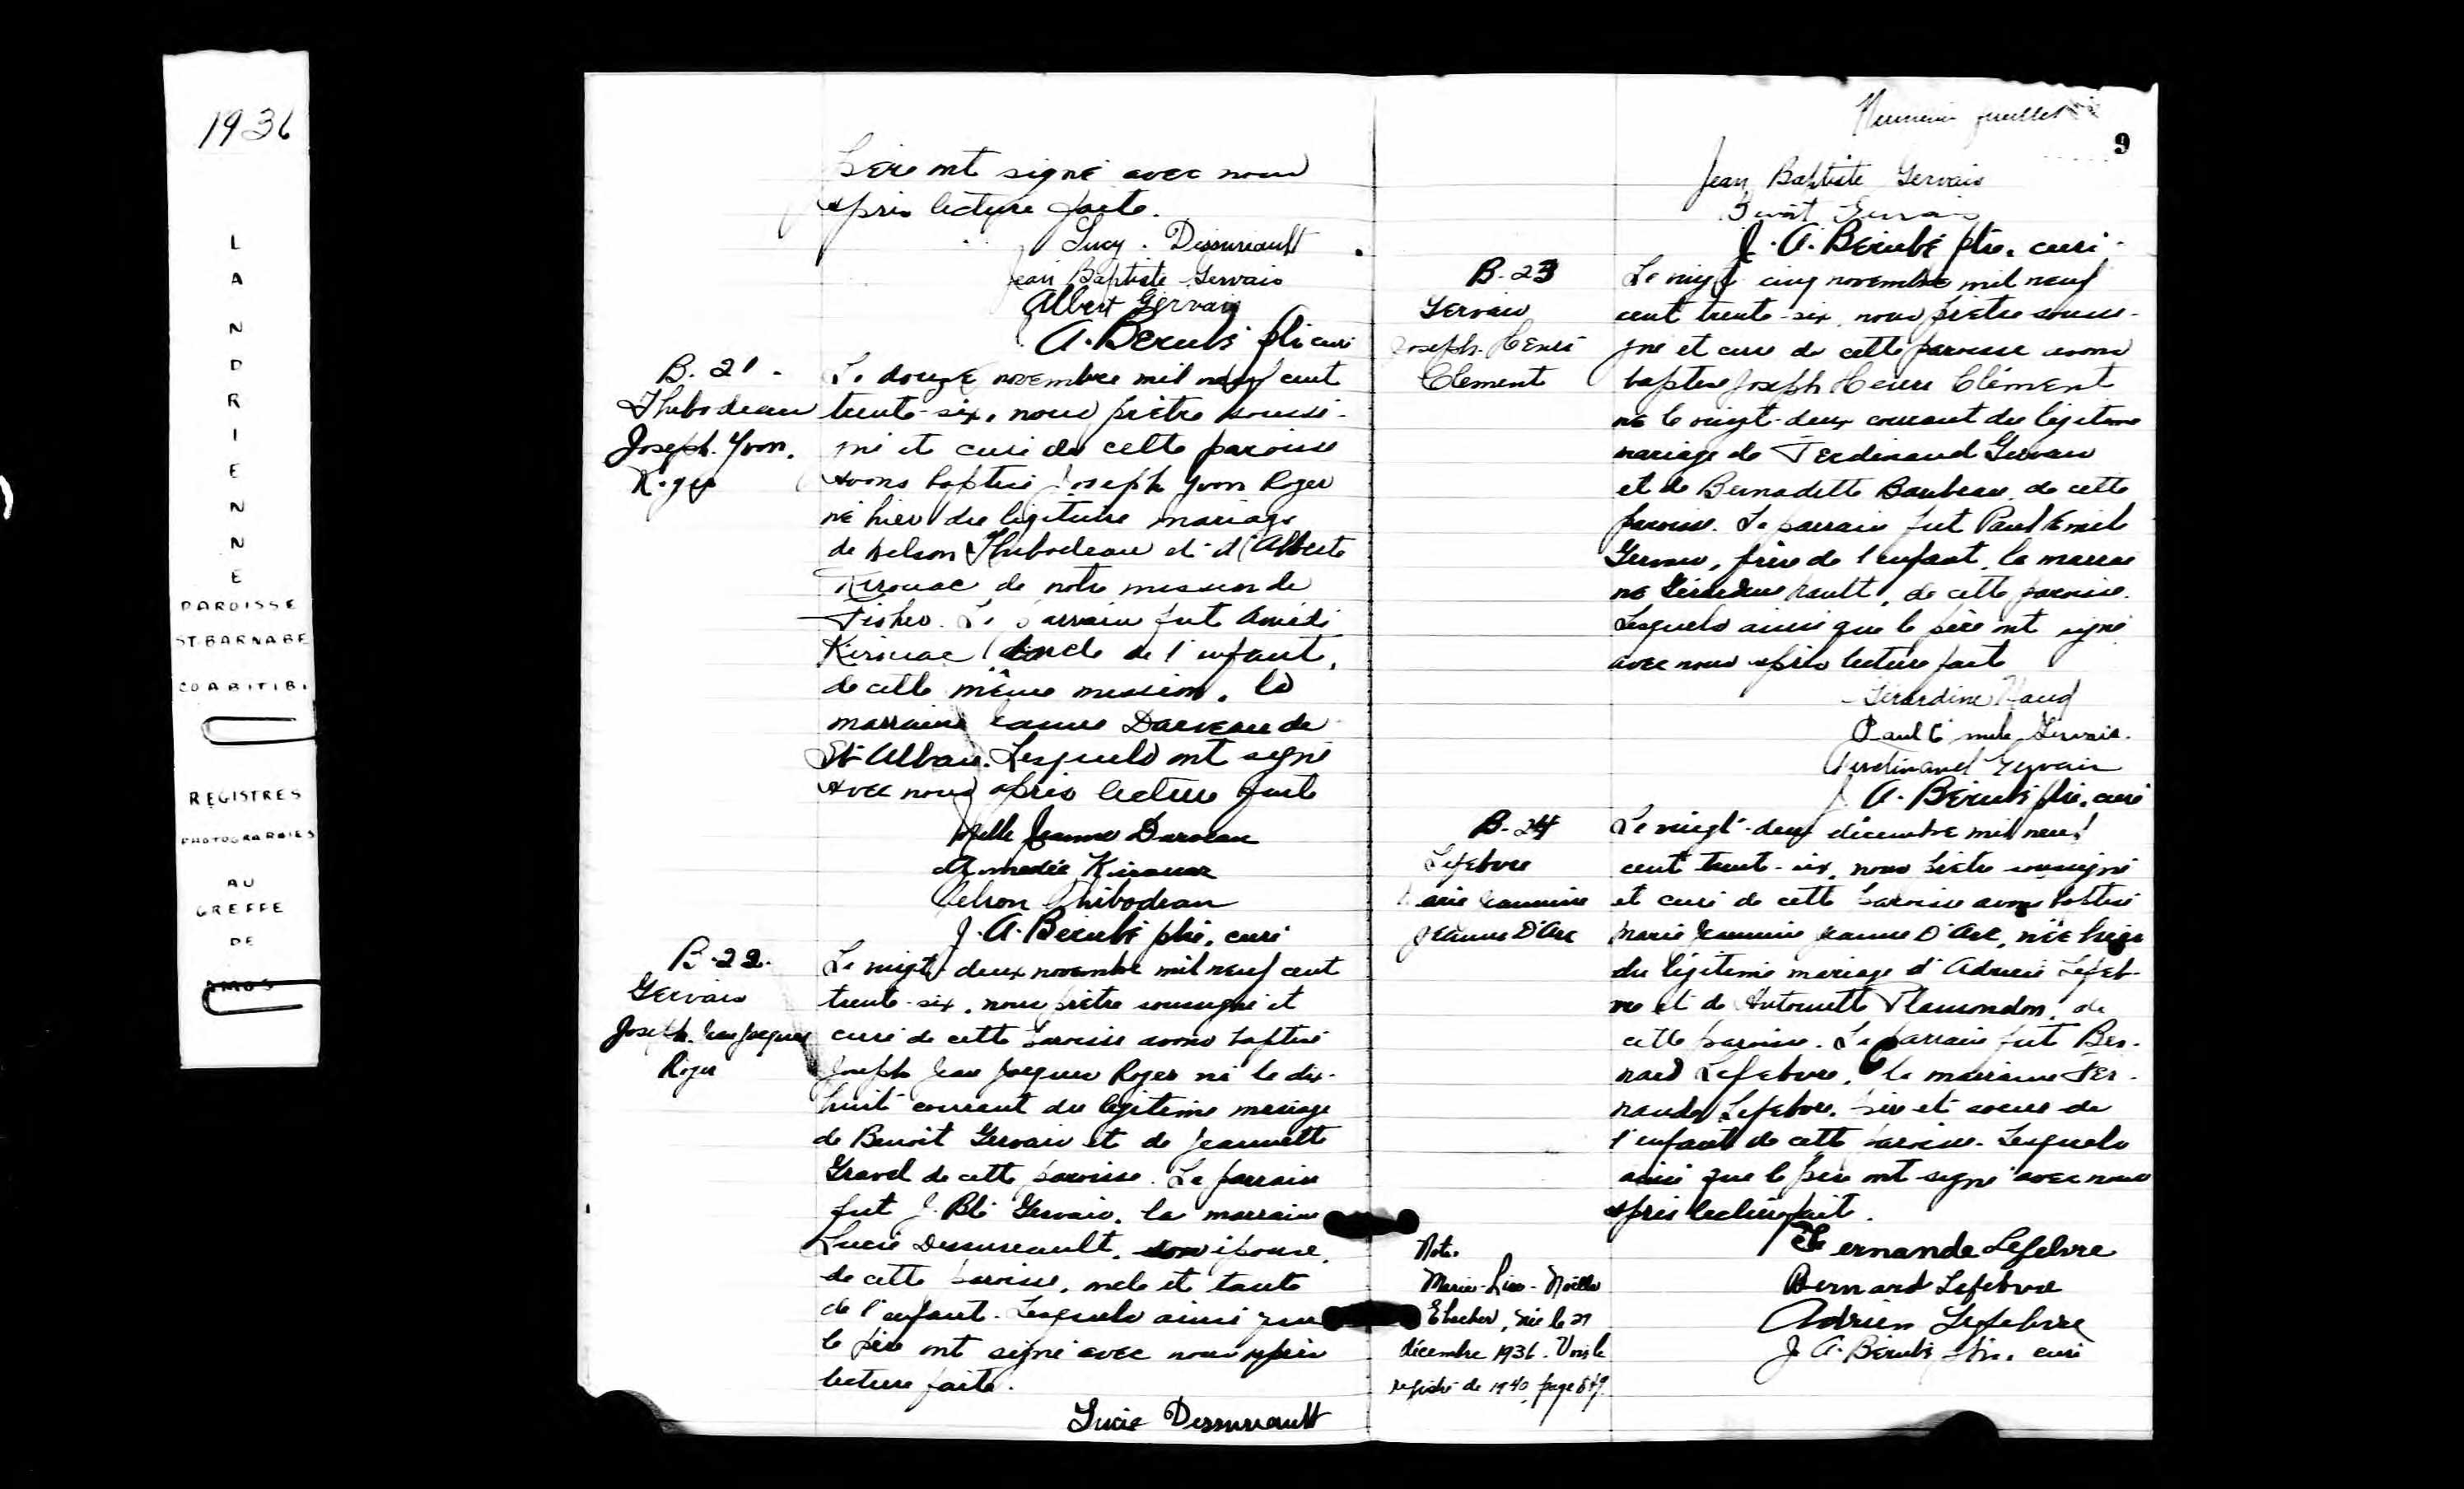 1936
LANDRIENNE
PAROISSE
ST-BARNABE
CO ABITIBI
REGISTRES
PHOTOGRAPHIES
AU
GREFFE
DE
AMOS
père ont signé avec nous
après lecture faite.
Lucy. Dessureault
Jean Baptiste Gervais
Albert Gervais
A. Bérubé ptre curé
B. 21.
Thibodeau
Joseph. Yvon.
Roger
Le douze novembre mil neuf cent
trente-six, nous prêtre soussi-
gné et curé de cette paroisse
avons baptisé Joseph Yvon Roger
né hier du légitime mariage
de Nelson Thibodeau et d'Alberte
Kirouac de notre mission de
Fisher. Le parrain fut Amédé
Kirouac oncle de l'enfant,
de cette même mission, la
marraine Jeanne Darveau de
St-Alban. Lesquels ont signé
avec nous après lecture faite
Melle Jeanne Darveau
Amédée Kirouac
Nelson Thibodeau
J. A. Bérubé ptre, curé
B. 22.
Gervais
Joseph. Jean Jacques
Roger
Le vingt-deux novembre mil neuf cent
trente-six, nous prêtre soussigné et
curé de cette paroisse avons baptisé
Joseph Jean Jacques Roger né le dix-
huit courant du légitime mariage
de Benoit Gervais et de Jeannette
Gravel de cette paroisse. Le parrain
fut J. Bte Gervais, la marraine
Lucie Dessureault, son épouse,
de cette paroisse, oncle et tante
de l'enfant. Lesquels ainsi que
le père ont signé avec nous après
lecture faite.
Lucie Dessureault
Neuvième feuillet
9
Jean Baptiste Gervais
Benoit Gervais
J. A. Bérubé ptre. curé
B. 23
Gervais
Joseph. Henri
Clément
Le vingt-cinq novembre mil neuf
cent trente-six, nous prêtre soussi-
gné et curé de cette paroisse avons
baptisé Joseph Henri Clément
né le vingt-deux courant du légitime
mariage de Ferdinand Gervais
et de Bernadette Barbeau, de cette
paroisse. Le parrain fut Paul Emile
Gervais, frère de l'enfant, la marrai
ne, de cette paroisse.
Lesquels ainsi que le père ont signé
avec nous après lecture faite
Gérardine
Paul Emile Gervais.
Ferdinand Gervais
J. A. Bérubé ptre. curé
B. 24
Lefebvre
Marie Jeannine
Jeanne D'Arc
Le vingt-deux décembre mil neuf
cent trente-six, nous prêtre soussigné
et curé de cette paroisse avons baptisé
Marie Jeannine Jeanne D'Arc, née hier
du légitime mariage d'Adrien Lefeb-
vre et de Antoinette Plamondon, de
cette paroisse. Le parrain fut Ber-
nard Lefebvre, la marraine Fer-
nande Lefebvre, frère et soeur de
l'enfant de cette paroisse. Lesquels
ainsi que le père ont signé avec nous
après lecture faite.
Fernande Lefebvre
Bernard Lefebvre
Adrien Lefebvre
J. A. Bérubé ptre. curé
Note.
Marie-Lise-Noëlla
née le 21
décembre 1936. Voir le
registre de 1940, page